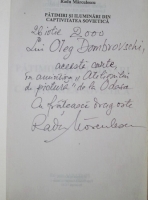 Radu Mărculescu
PĂTIMIRI ȘI ILUMINĂRI DIN
CAPTIVITATEA SOVIETICĂ
26 iulie 2000
Lui Oleg Dombrovschi,
această carte,
în amintirea "Atelierului
de pictură" de la Odesa
Cu frățească dragoste
Radu Mărculescu